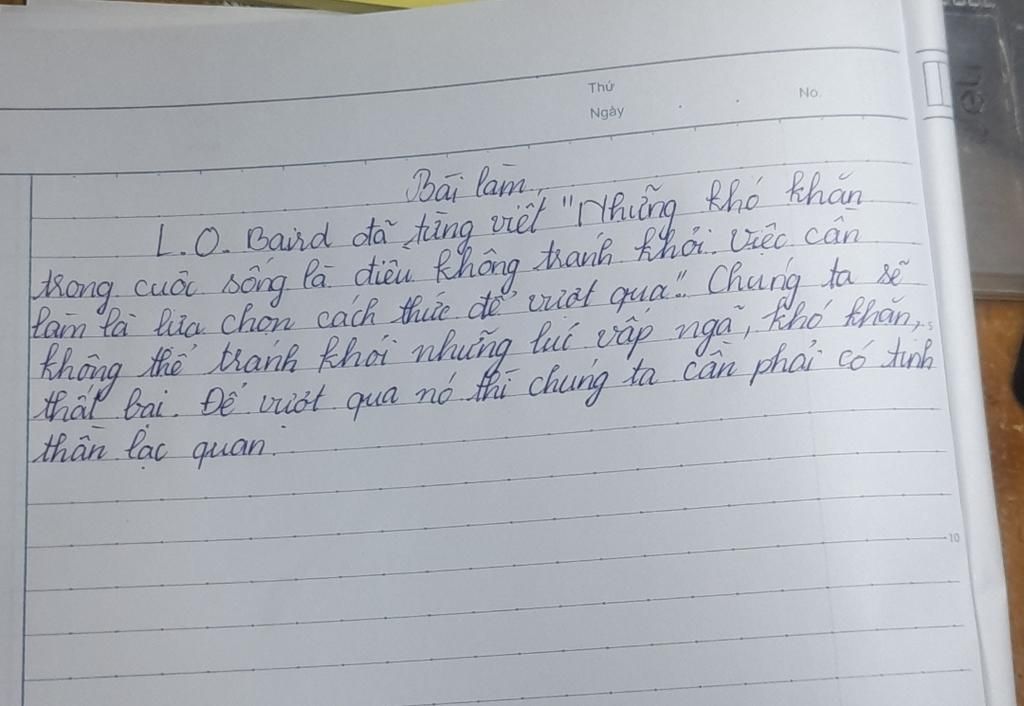 Thứ
Ngày
No.
Bài làm
L.O. Baird đã từng viết "Những khó khăn
trong cuộc sống là điều không tránh khỏi. Việc cần
làm là lựa chọn cách thức để vượt qua". Chúng ta sẽ
không thể tránh khỏi những lúc vấp ngã, khó khăn,
thất bại. Để vượt qua nó thì chúng ta cần phải có tinh
thần lạc quan.
10